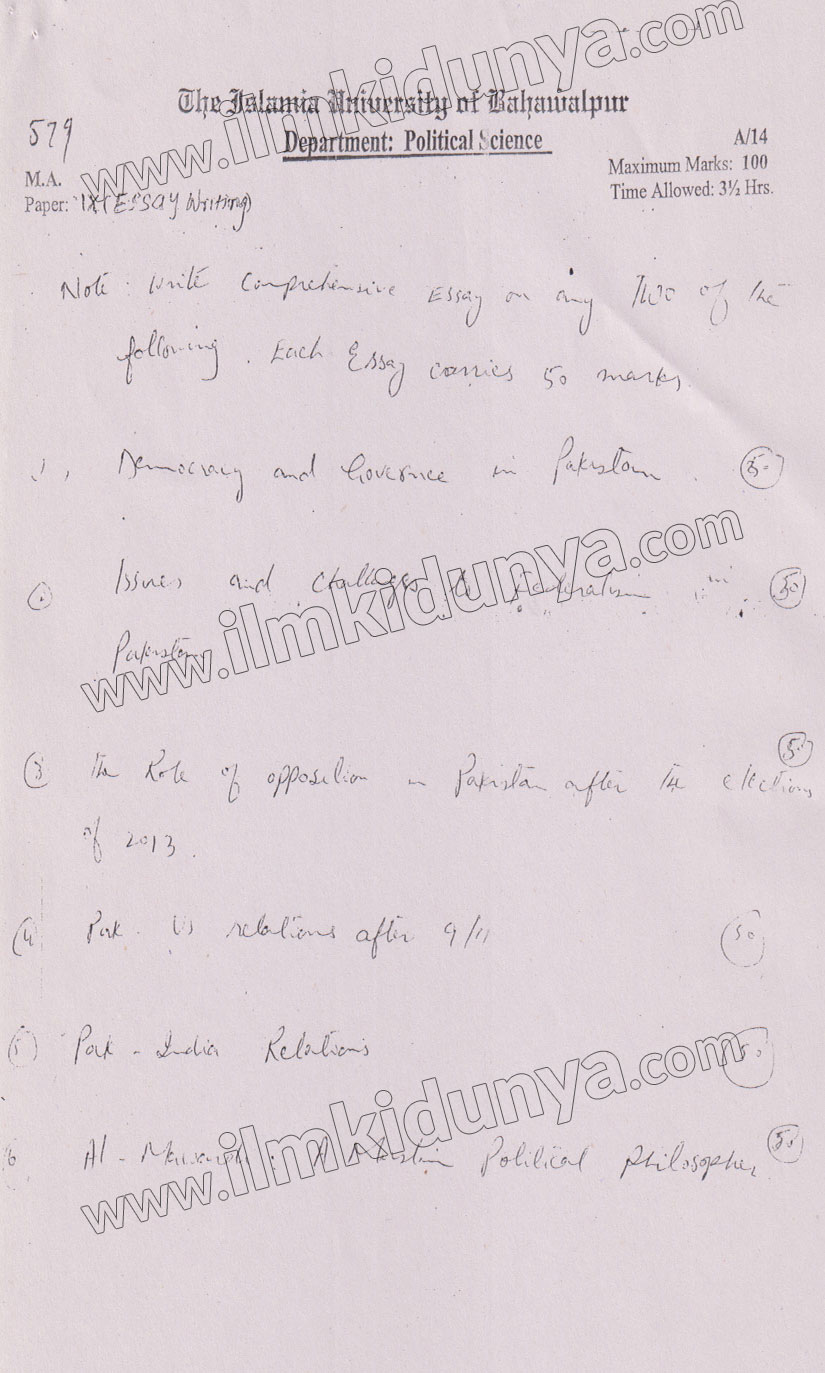 www.ilmkidunya.com
The Islamia University of Bahawalpur
579
Department: Political Science
A/14
M.A.
Maximum Marks: 100
Paper: IX (ESSAY Writing)
Time Allowed: 3½ Hrs.
Note: Write Comprehensive Essay on any Two of the
following. Each Essay carries 50 marks.
1, Democracy and Governce in Pakistan. 50
www.ilmkidunya.com
Issues and challenges to Federalism in 50
Pakistan
3 The Role of opposition in Pakistan after the elections 50
of 2013.
(4 Pak. US relations after 9/11 50
5 Pak - India Relations 50
www.ilmkidunya.com
6 Al-Mawardi: A Muslim Political Philosopher 50